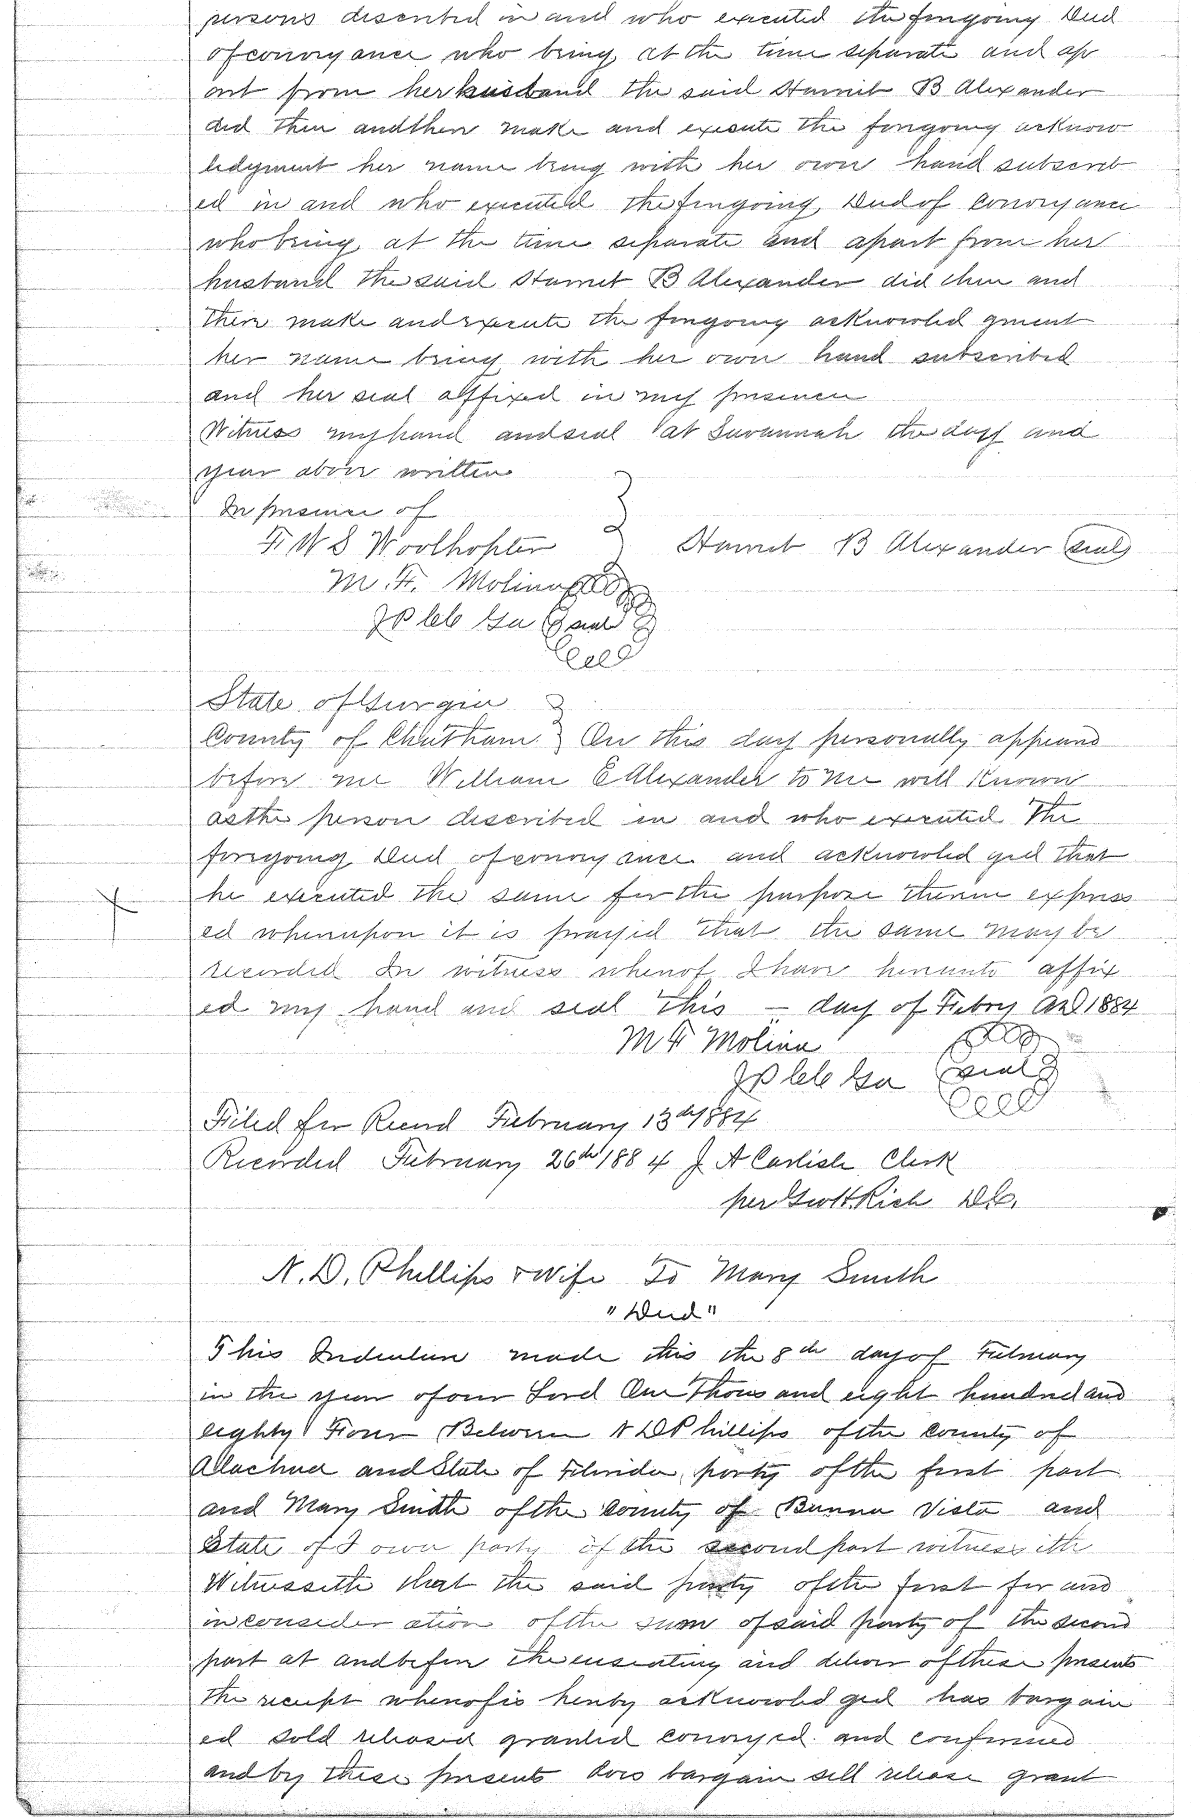 persons described in and who executed the foregoing Deed
of conveyance who being at the time separate and ap
art from her husband the said Harriet B Alexander
did then and then make and execute the foregoing acknow
ledgment her name being with her own hand subscrib
ed in and who executed the foregoing Deed of conveyance
who being at the time separate and apart from her
husband the said Harriet B Alexander did then and
then make and execute the foregoing acknowledgment
her name being with her own hand subscribed
and her seal affixed in my presence
Witness my hand and seal at Savannah the day and
year above written
In presence of
F W S Woolhopter Harriet B Alexander seal
M. F. Molina
JP CC Ga seal
State of Georgia
County of Chatham } On this day personally appeared
before me William E Alexander to me well known
as the person described in and who executed the
foregoing Deed of conveyance and acknowledged that
he executed the same for the purpose therein express
ed whereupon it is prayed that the same may be
recorded In witness whereof I have hereunto affix
ed my hand and seal this — day of Febry AD 1884
M F Molina
JP CC Ga seal
Filed for Record February 13th 1884
Recorded February 26th 1884 J A Carlisle Clerk
per Geo H. Rich D.C.
N. D. Phillips & Wife To Mary Smith
"Deed"
This Indenture made this the 8th day of February
in the year of our Lord One Thousand eight hundred and
eighty Four Between N D Phillips of the County of
Alachua and State of Florida party of the first part
and Mary Smith of the County of Buena Vista and
State of Iowa party of the second part witnesseth
Witnesseth that the said party of the first for and
in consideration of the sum of said party of the second
part at and before the ensealing and deliver of these presents
the receipt whereof is hereby acknowledged has bargain
ed sold released granted conveyed and confirmed
and by these presents does bargain sell release grant